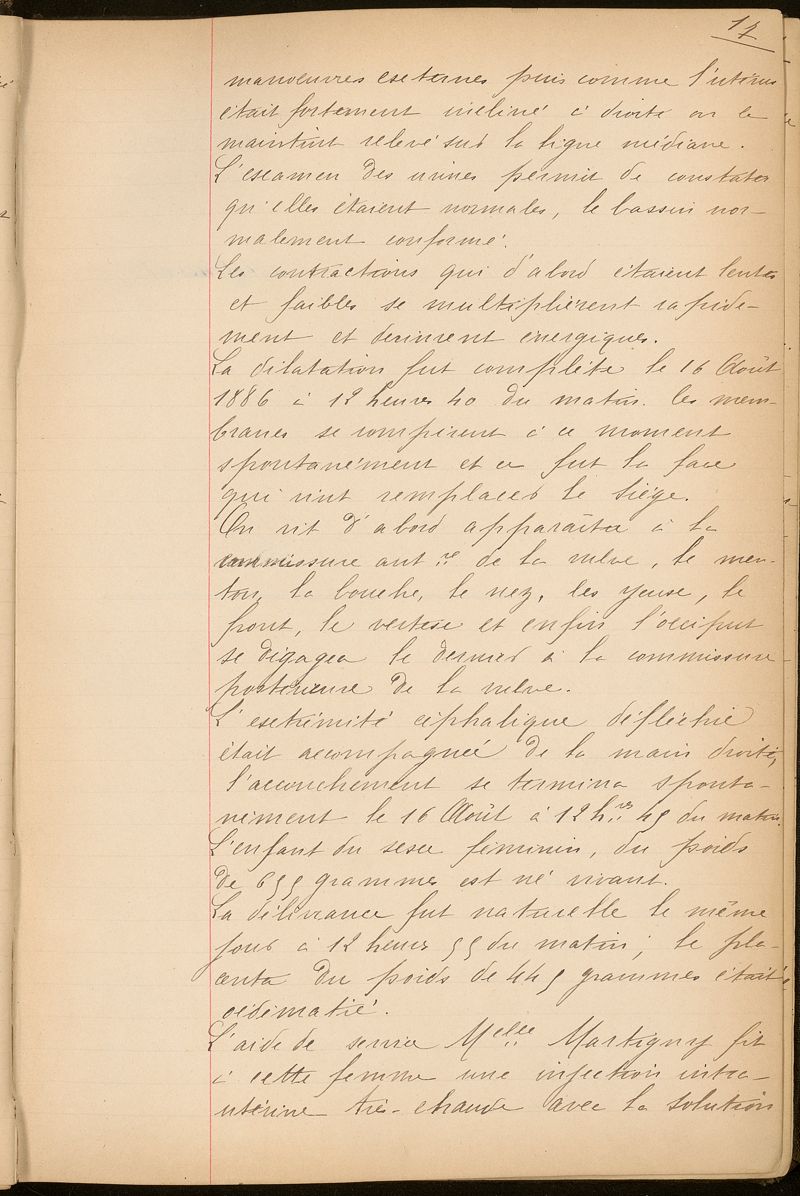 17
manœuvres externes puis comme l'utérus
était fortement incliné à droite on le
maintint relevé sur la ligne médiane.
L'examen des urines permit de constater
qu'elles étaient normales, le bassin nor-
malement conformé.
Les contractions qui d'abord étaient lentes
et faibles se multiplièrent rapide-
ment et devinrent énergiques.
La dilatation fut complète le 16 Août
1886 à 12 heures 40 du matin. les mem-
branes se rompirent à ce moment
spontanément et ce fut la face
qui vint remplacer le siége.
On vit d'abord apparaître à la
commissure ant re de la vulve, le men-
ton, la bouche, le nez, les yeux, le
front, le vertex et enfin l'occiput
se dégagea le dernier à la commissure
postérieure de la vulve.
L'extrémité céphalique défléchie
était accompagnée de la main droite,
l'accouchement se termina sponta-
nément le 16 Août à 12 h res 45 du matin.
L'enfant du sexe féminin, du poids
de 655 grammes est né vivant.
La délivrance fut naturelle le même
jour à 12 heures 55 du matin; le pla-
centa du poids de 445 grammes était
œdématié.
L'aide de service Melle Martigny fit
à cette femme une injection intra-
utérine très-chaude avec la solution